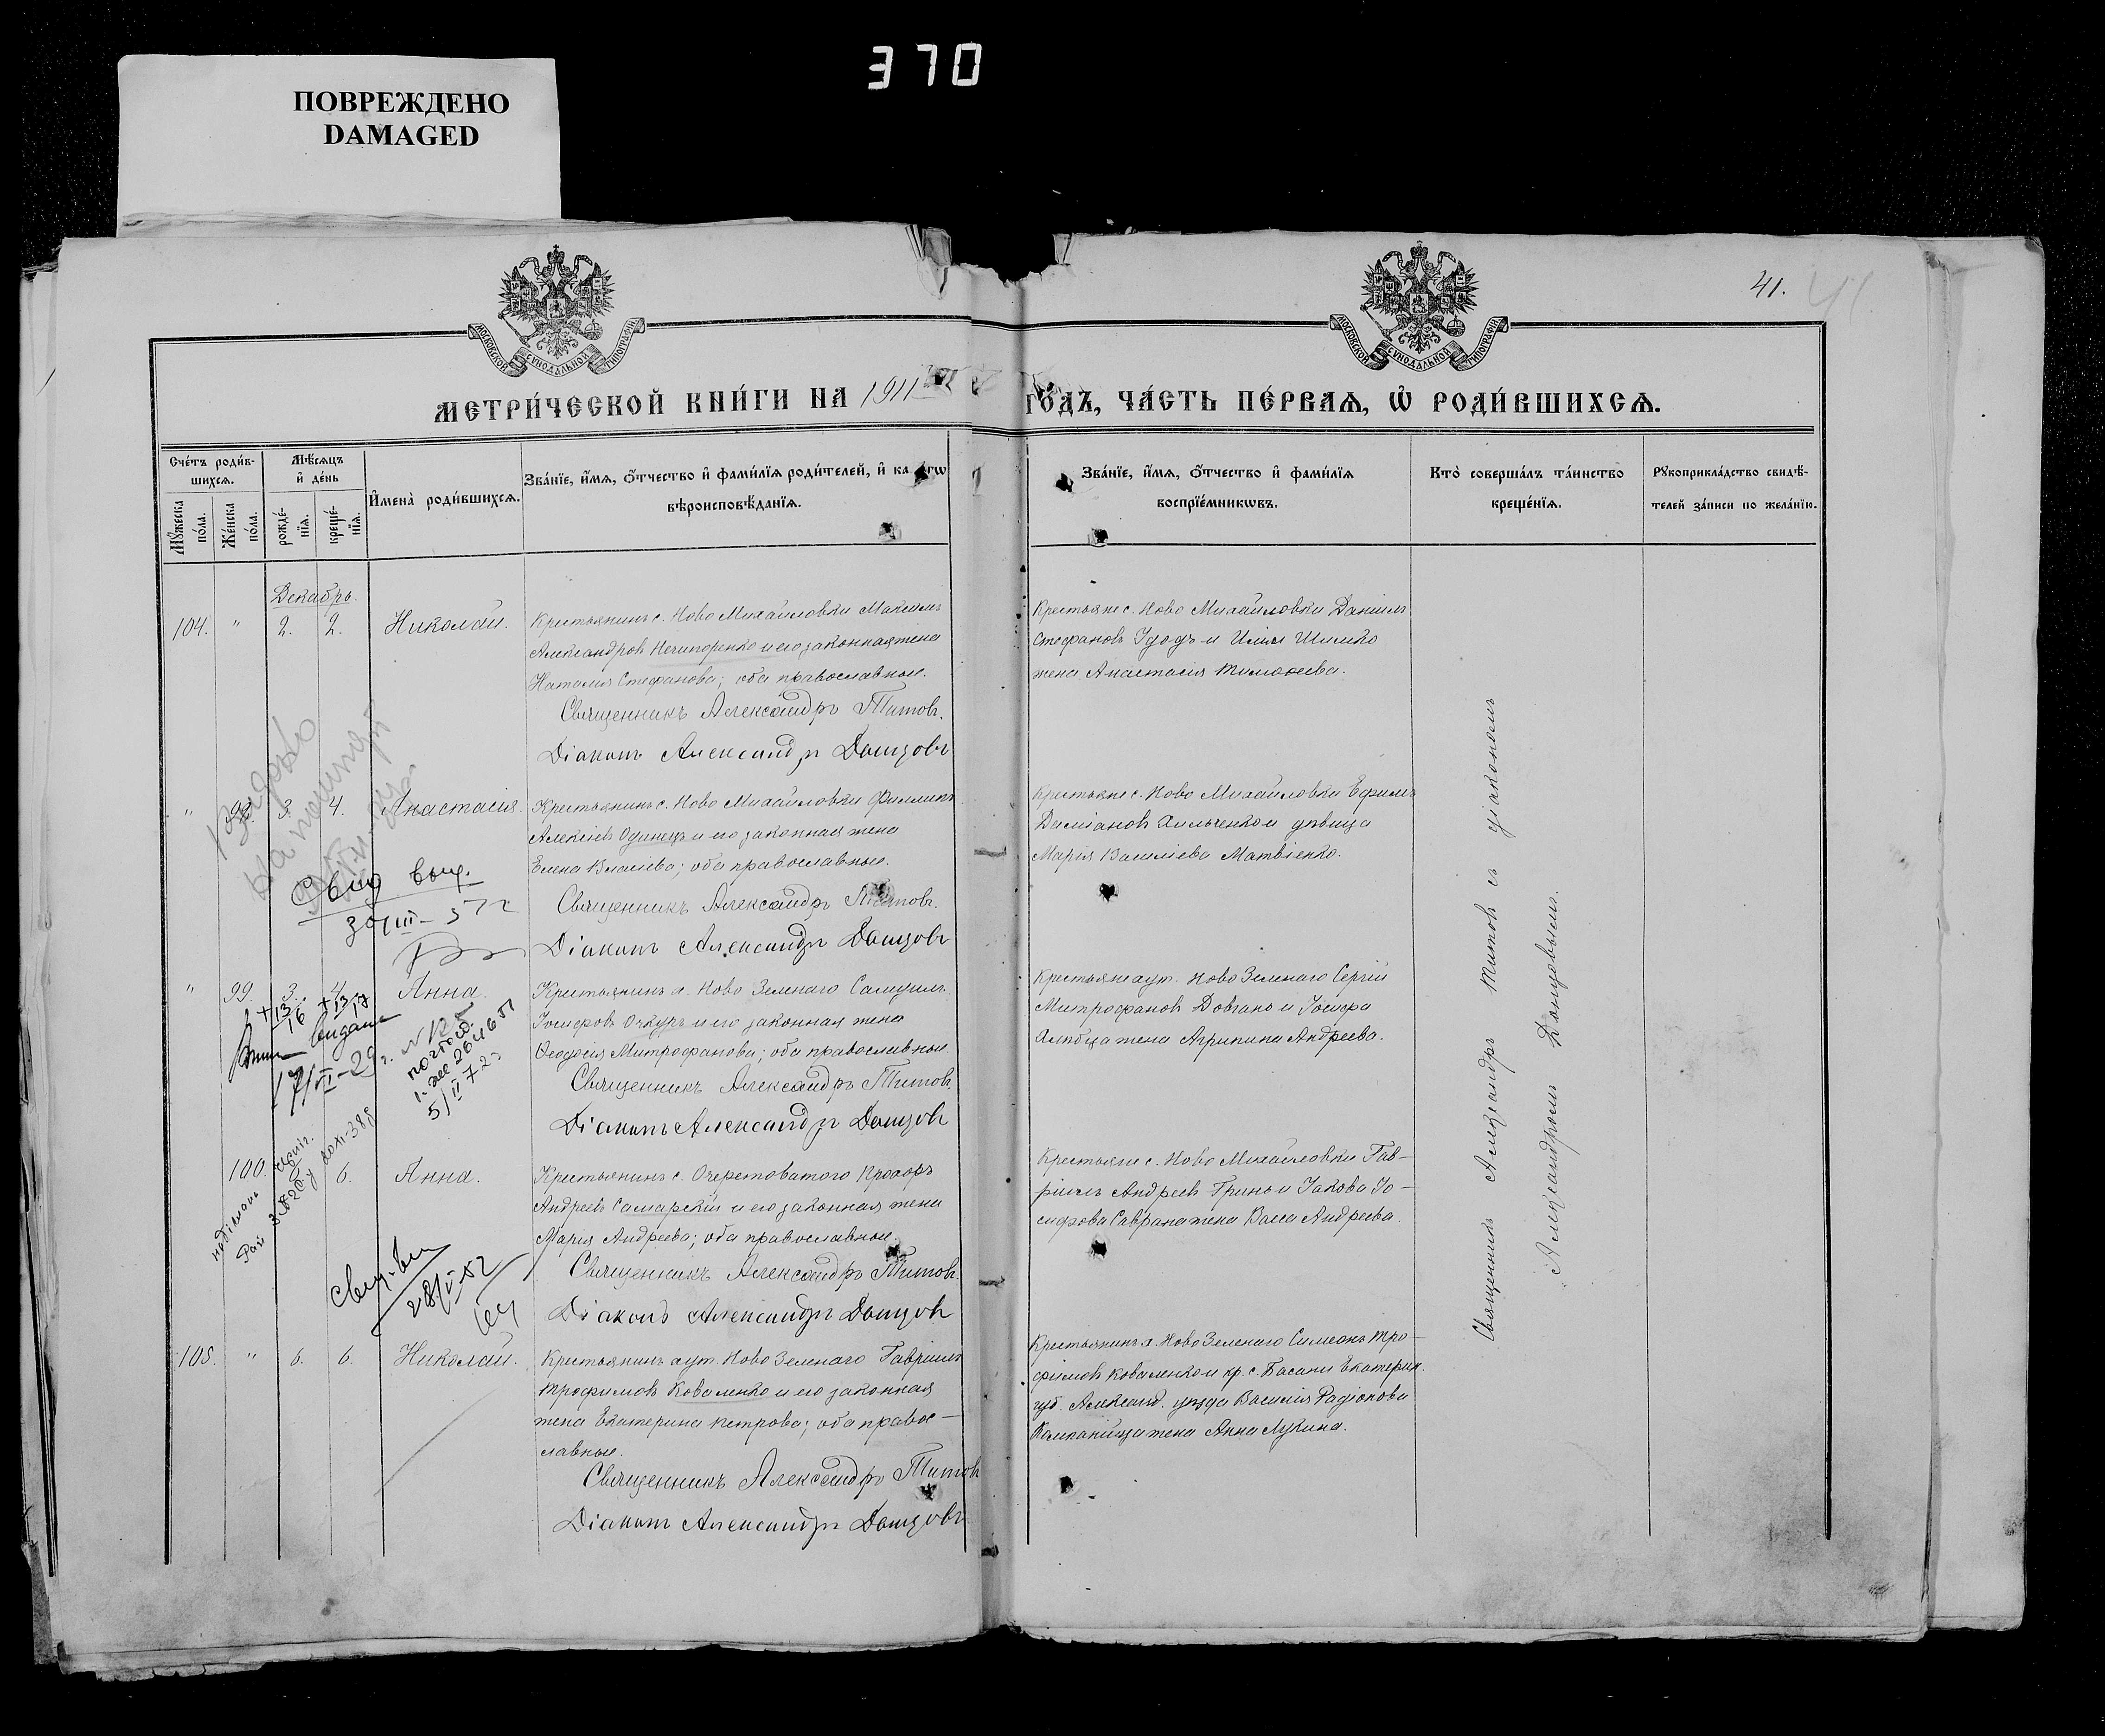 370
ПОВРЕЖДЕНО
DAMAGED
41.
41
МОСКОВСКОЙ СѴНОДАЛЬНОЙ ТИПОГРАФІИ
МОСКОВСКОЙ СѴНОДАЛЬНОЙ ТИПОГРАФІИ
МЕТРИ́ЧЕСКОЙ КНИ́ГИ НА 1911 ГО́ДЪ, ЧА́СТЬ ПЕ́РВАѦ, Ѡ҆ РОДИ́ВШИХСѦ.
Сче́тъ роди́в-
шихсѧ.
Мꙋ́жеска по́ла.
Же́нска по́ла.
Мѣ́сѧцъ
и҆ де́нь
рожде́-
нїѧ.
креще́-
нїѧ.
И҆мена̀ роди́вшихсѧ.
Зва́нїе, и҆́мѧ, ѻ҆́тчество и҆ фами́лїѧ роди́телей, и҆ ка гѡ
вѣроисповѣ́данїѧ.
Зва́нїе, и҆́мѧ, ѻ҆́тчество и҆ фами́лїѧ
воспрїе́мникѡвъ.
Кто̀ соверша́лъ та́инство
креще́нїѧ.
Рꙋкоприкла́дство свидѣ́-
телей за́писи по жела́нїю.
Декабрь.
104. " 2. 2. Николай.
Крестьянинъ с. Ново Михайловки Максимъ
Александровъ Нечипоренко и его законная жена
Наталия Стефанова; оба православные.
Священникъ Александръ Титовъ.
Діаконъ Александръ Донцовъ
Крестьяне с. Ново Михайловки Даніилъ
Стефановъ Удодъ и Иліи Шимко
жена Анастасія Тимоѳеева.
" 98. 3. 4. Анастасія.
Крестьянинъ с. Ново Михайловки Филиппъ
Алексіевъ Одинецъ и его законная жена
Елена Власіева; оба православные.
Священникъ Александръ Титовъ.
Діаконъ Александръ Донцовъ
Крестьяне с. Ново Михайловки Ефимъ
Даміановъ Хильченко и дѣвица
Марія Василіева Матвіенко.
выд.
30/III-57 г
" 99. 3. 4. Анна.
Крестьянинъ х. Ново Зеленаго Самуилъ
Іосифовъ Очкуръ и его законная жена
Ѳеодосія Митрофанова; оба православные.
Священникъ Александръ Титовъ.
Діаконъ Александръ Донцовъ
Крестьяне хут. Ново Зеленаго Сергій
Митрофановъ Довгань и Іосифа
жена Агрипина Андреева.
выдана
5/II 72
100. 6. Анна.
Крестьянинъ с. Очеретоватого Прохоръ
Андреевъ Самарскій и его законная жена
Марія Андреева; оба православные.
Священникъ Александръ Титовъ.
Діаконъ Александръ Донцовъ
Крестьяне с. Ново Михайловки Гав-
ріилъ Андреевъ Гринь и Іакова Іо-
сифова Саврана жена Васса Андреева.
28/V-52
105. " 6. 6. Николай.
Крестьянинъ хут. Ново Зеленаго Гавріилъ
Трофимовъ Коваленко и его законная
жена Екатерина Петрова; оба правос-
лавные.
Священникъ Александръ Титовъ
Діаконъ Александръ Донцовъ
Крестьянинъ х. Ново Зеленаго Симеонъ Тро-
фимовъ Коваленко и кр. с. Басани Екатерин.
губ. Александ. уѣзда Василія Радіонова
жена Анна Лукина.
Священникъ Александръ Титовъ съ діакономъ
Александромъ Донцовымъ.